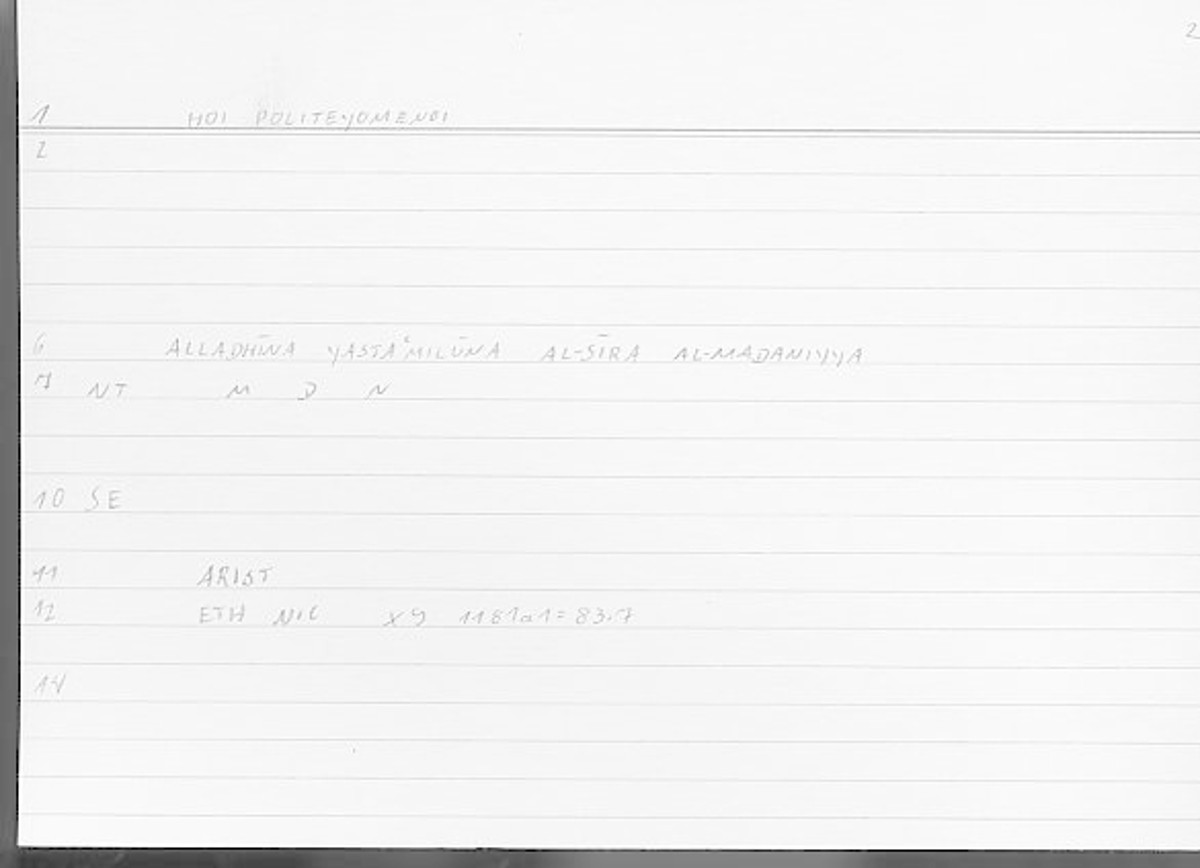 2
1 HOI POLITEYOMENOI
2
6 ALLADHĪNA YASTAʿMILŪNA AL-SĪRA AL-MADANIYYA
7 NT M D N
10 SE
11 ARIST
12 ETH NIC X9 1181a1=83.7
14